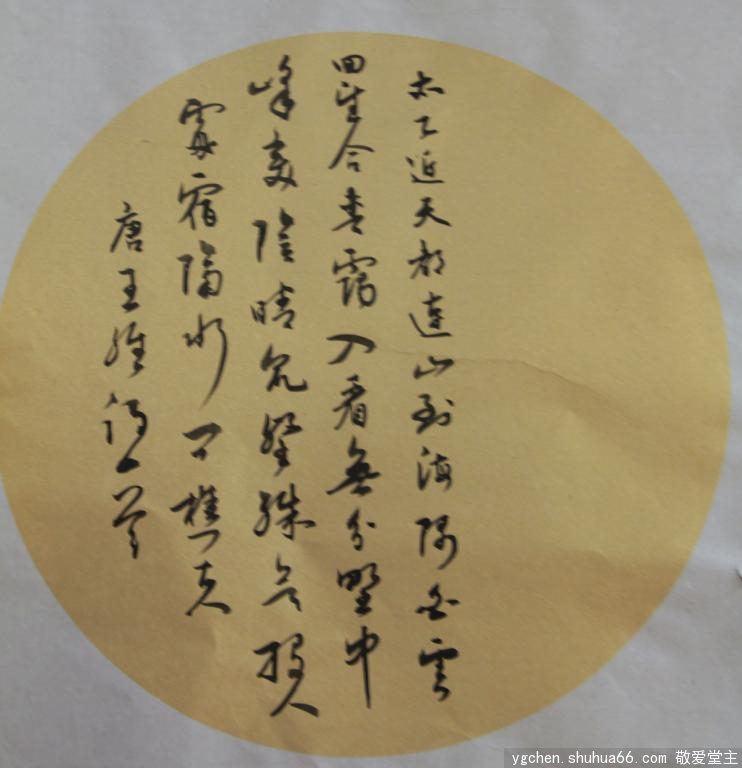 太乙近天都連山到海隅白雲
回望合青靄入看無分野中
峰变陰晴众壑殊欲投人
處宿隔水问樵夫
唐王维诗一首
ygchen.shuhua66.com 敬爱堂主